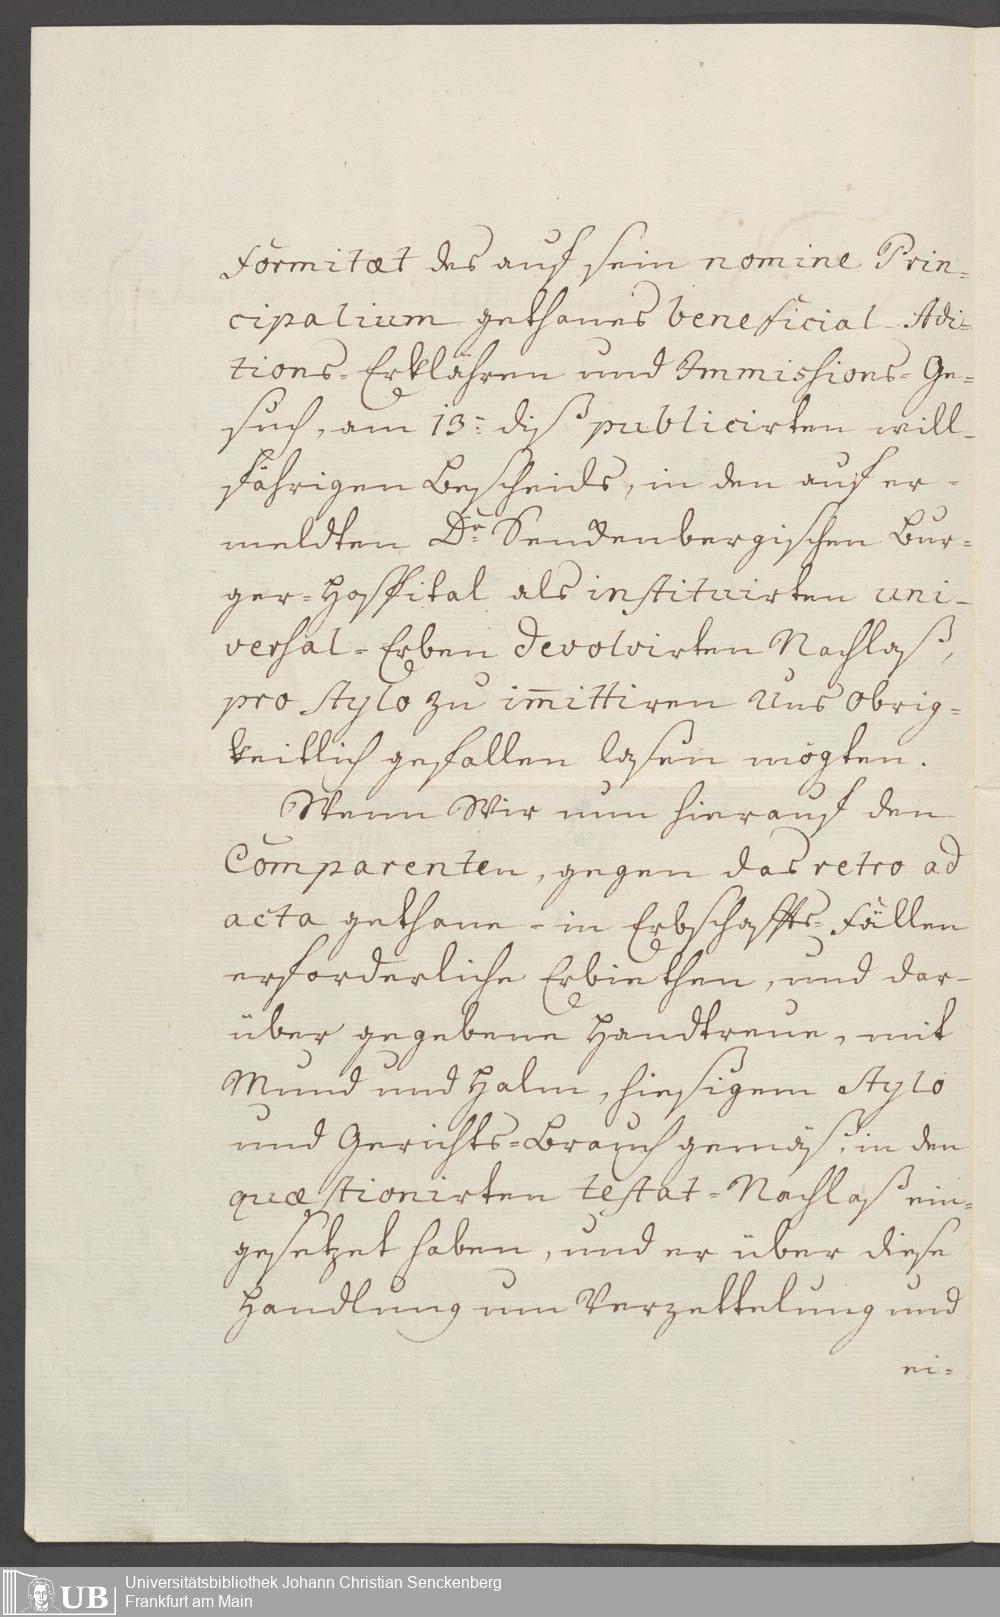 formitæt des auf sein nomine Prin=
cipalium gethanes beneficial-Adi=
tions-Erklähren und Immissions-Ge=
such, am 13.= diß publicirten will-
fährigen Bescheids, in den auf er-
meldten Dr. Senckenbergischen Bur=
ger=Hospital als instituirten uni-
versal-Erben devolvirten Nachlaß,
pro stylo zu im̄ittiren Uns Obrig=
keitlich gefallen lasen mögten.
Wenn Wir nun hierauf den
Comparenten, gegen das retro ad
acta gethane-in Erbschaffts-Fällen
erforderliche Erbiethen, und dar-
über gegebene Handtreue, mit
Mund und Halm, hiesigem Stylo
und Gerichts=Brauch gemäß, in den
quæstionirten testat=Nachlaß ein=
gesetzet haben, und er über diese
Handlung um Verzettelung und
ei=
UB
Universitätsbibliothek Johann Christian Senckenberg
Frankfurt am Main